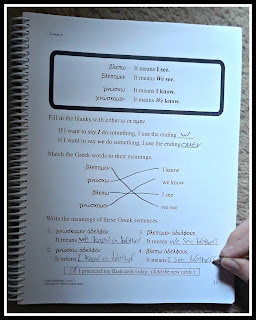 βλεπω It means I see.
βλεπομεν It means We see.
γινωσκω It means I know.
γινωσκομεν It means We know.
Fill in the blanks with either ω or ομεν.
If I want to say I do something, I use the ending ω
If I want to say we do something, I use the ending ομεν
Match the Greek words to their meanings.
βλεπομεν I know
γινωσκω we know
βλεπω I see
γινωσκομεν we see
Write the meanings of these Greek sentences.
1. γινωσκομεν αδελφον. 3. βλεπομεν αδελφους.
It means We know a brother It means We see brothers
2. γινωσκω αδελφον. 4. βλεπω αδελφους.
It means I know a brother It means I see brothers
I practiced my flashcards today. (Add the new cards.)